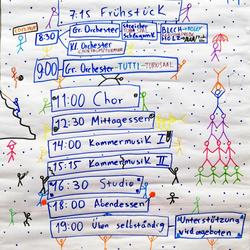 7:15 Frühstück
8:30 Gr. Orchester
Kl. Orchester
9:00 Gr. Orchester - TUTTI - TURNSAAL
11:00 Chor
12:30 Mittagessen
14:00 Kammermusik I
15:15 Kammermusik II
16:30 Studio
18:00 Abendessen
19:00 Üben selbständig
*Unterstützung
wird angeboten*